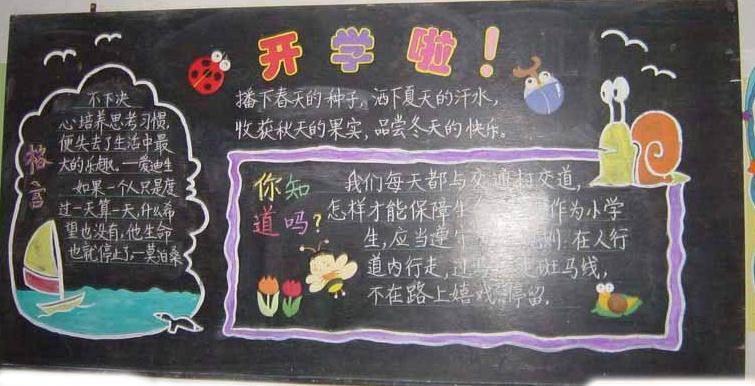 开学啦！
播下春天的种子，洒下夏天的汗水，
收获秋天的果实，品尝冬天的快乐。
格言
不下决
心培养思考习惯，
便失去了生活中最
大的乐趣。—爱迪生
如果一个人只是度
过一天算一天，什么希
望也没有，他生命
也就停止了，—莫泊桑
你知
道吗？
我们每天都与交通打交道，
怎样才能保障生 作为小学
生，应当遵守 则：在人行
道内行走，过马 走斑马线，
不在路上嬉戏、停留。